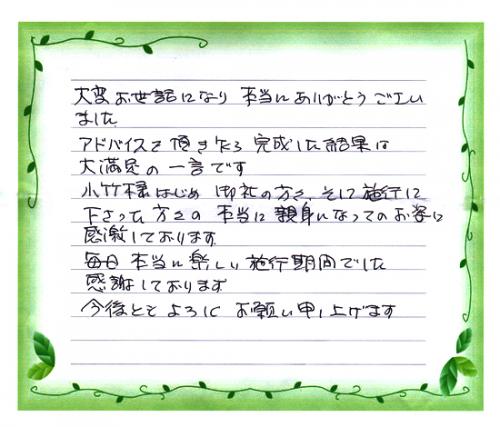 大変お世話になり 本当にありがとうござい
ました
アドバイスを頂きたろ 完成した結果は
大満足の一言です
小竹様はじめ 御社の方々、そして施行に
下さった方々の 本当に親身になってのお姿に
感激しております
毎日 本当に楽しい施行期間でした
感謝しております
今後とも よろしく お願い申し上げます